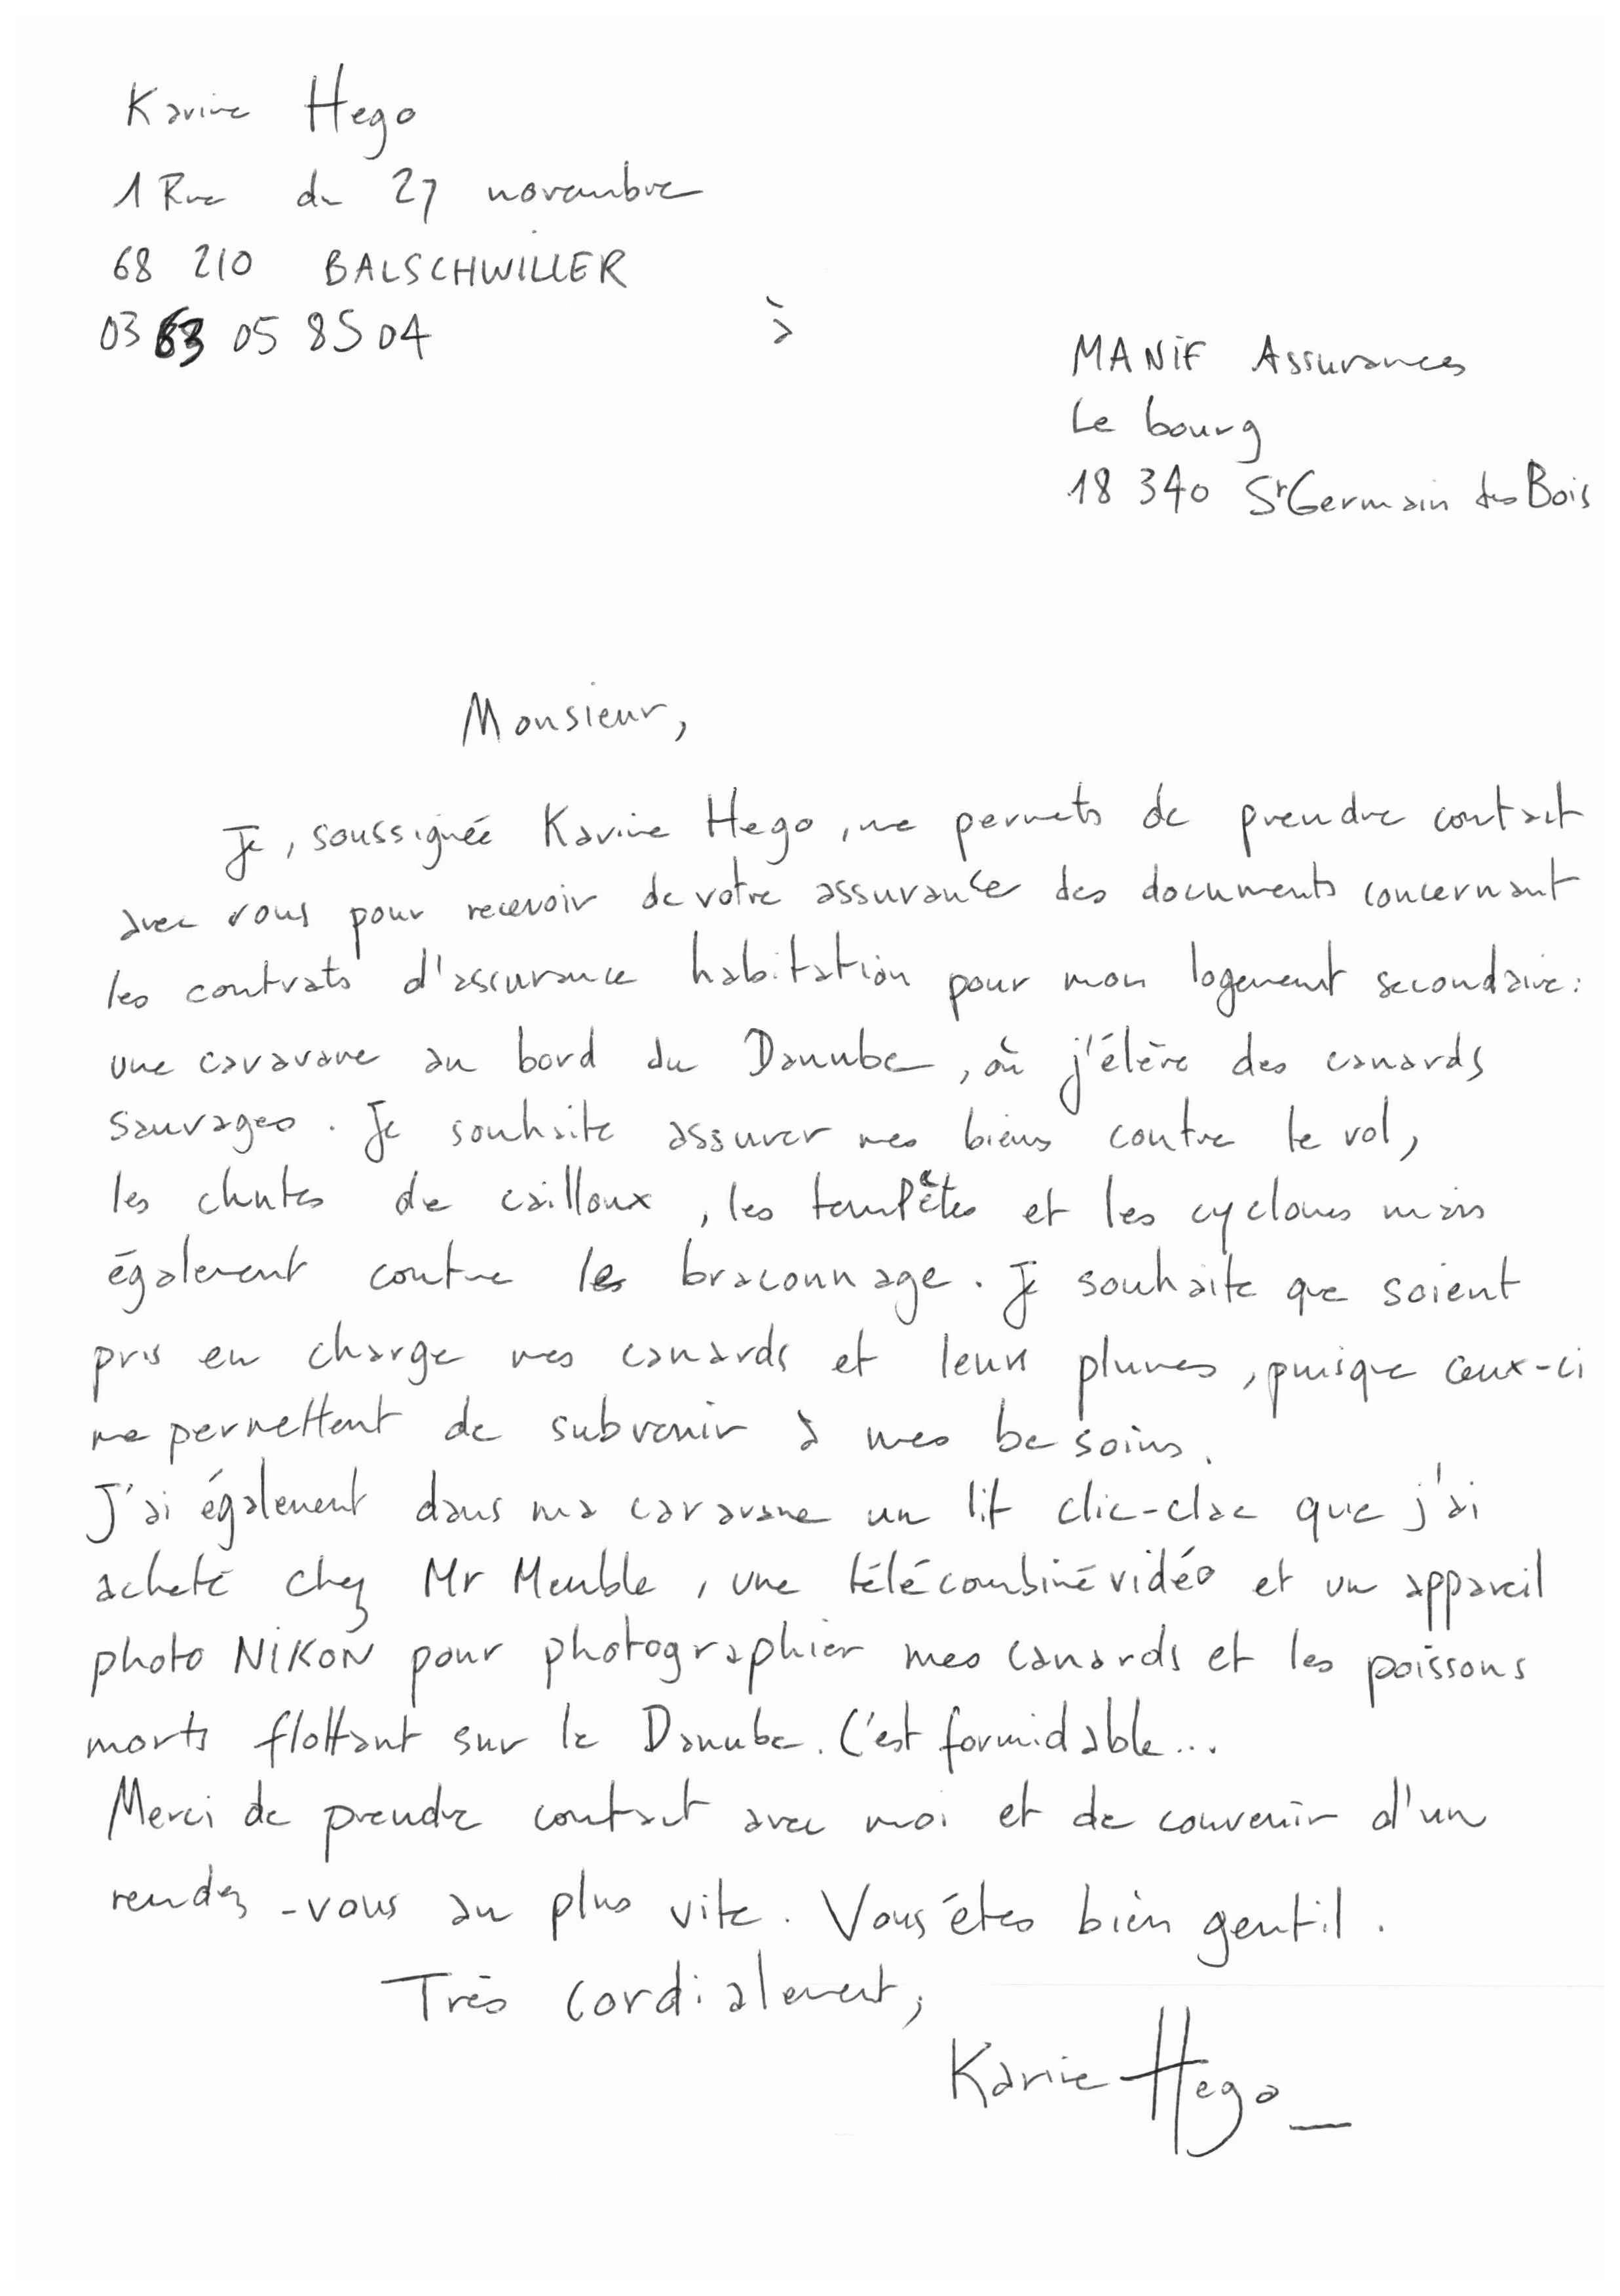 Karine Hego
1 Rue du 27 novembre
68 210 BALSCHWILLER
03 63 05 85 04
à
MANIF Assurances
Le bourg
18 340 St Germain des Bois
Monsieur,
Je, soussignée Karine Hego, me permets de prendre contact
avec vous pour recevoir de votre assurance des documents concernant
les contrats d'assurance habitation pour mon logement secondaire :
une caravane au bord du Danube, où j'élève des canards
sauvages. Je souhaite assurer mes biens contre le vol,
les chutes de cailloux, les tempêtes et les cyclones mais
également contre le braconnage. Je souhaite que soient
pris en charge mes canards et leurs plumes, puisque ceux-ci
me permettent de subvenir à mes besoins.
J'ai également dans ma caravane un lit clic-clac que j'ai
acheté chez Mr Meuble, une télé combiné vidéo et un appareil
photo NIKON pour photographier mes canards et les poissons
morts flottant sur le Danube. C'est formidable...
Merci de prendre contact avec moi et de convenir d'un
rendez-vous au plus vite. Vous êtes bien gentil.
Très cordialement,
Karine Hego